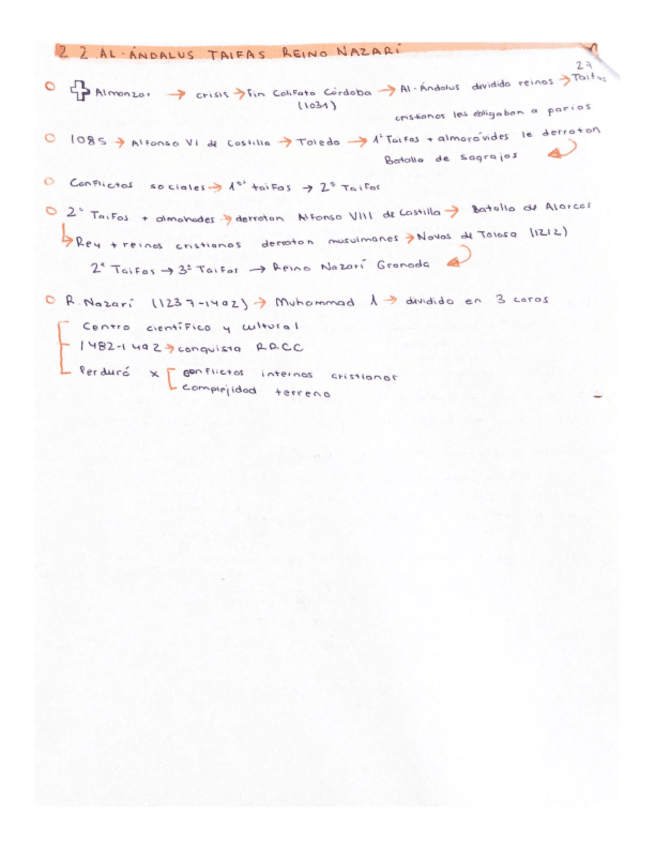 2 2 AL-ÁNDALUS TAIFAS REINO NAZARÍ
27
Almanzor → crisis → Fin Califato Córdoba → Al-Ándalus dividido reinos → Taifas
(1031)
cristianos les obligaban a parias
1085 → Alfonso VI de Castilla → Toledo → 1ª Taifas + almorávides le derrotan
Batalla de Sagrajas
Conflictos sociales → 1ªˢ taifas → 2ª Taifas
2ª Taifas + almohades → derrotan Alfonso VIII de Castilla → Batalla de Alarcos
Rey + reinos cristianos derrotan musulmanes → Navas de Tolosa (1212)
2ª Taifas → 3ª Taifas → Reino Nazarí Granada
R. Nazarí (1237-1492) → Muhammad 1 → dividido en 3 coras
Centro científico y cultural
1482-1492 → conquista RRCC
Perduró x conflictos internos cristianos
complejidad terreno